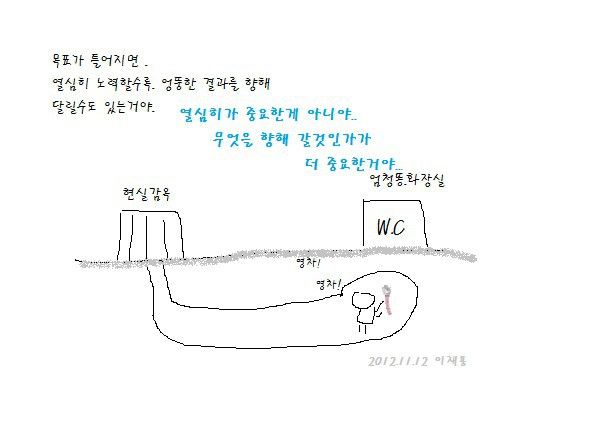 목표가 틀어지면 .
열심히 노력할수록. 엉뚱한 결과를 향해
달릴수도 있는거야.
열심히가 중요한게 아니야..
무엇을 향해 갈것인가가
더 중요한거야...
현실감옥
엄청똥.화장실
W.C
영차!
영차!
2012.11.12 이재용